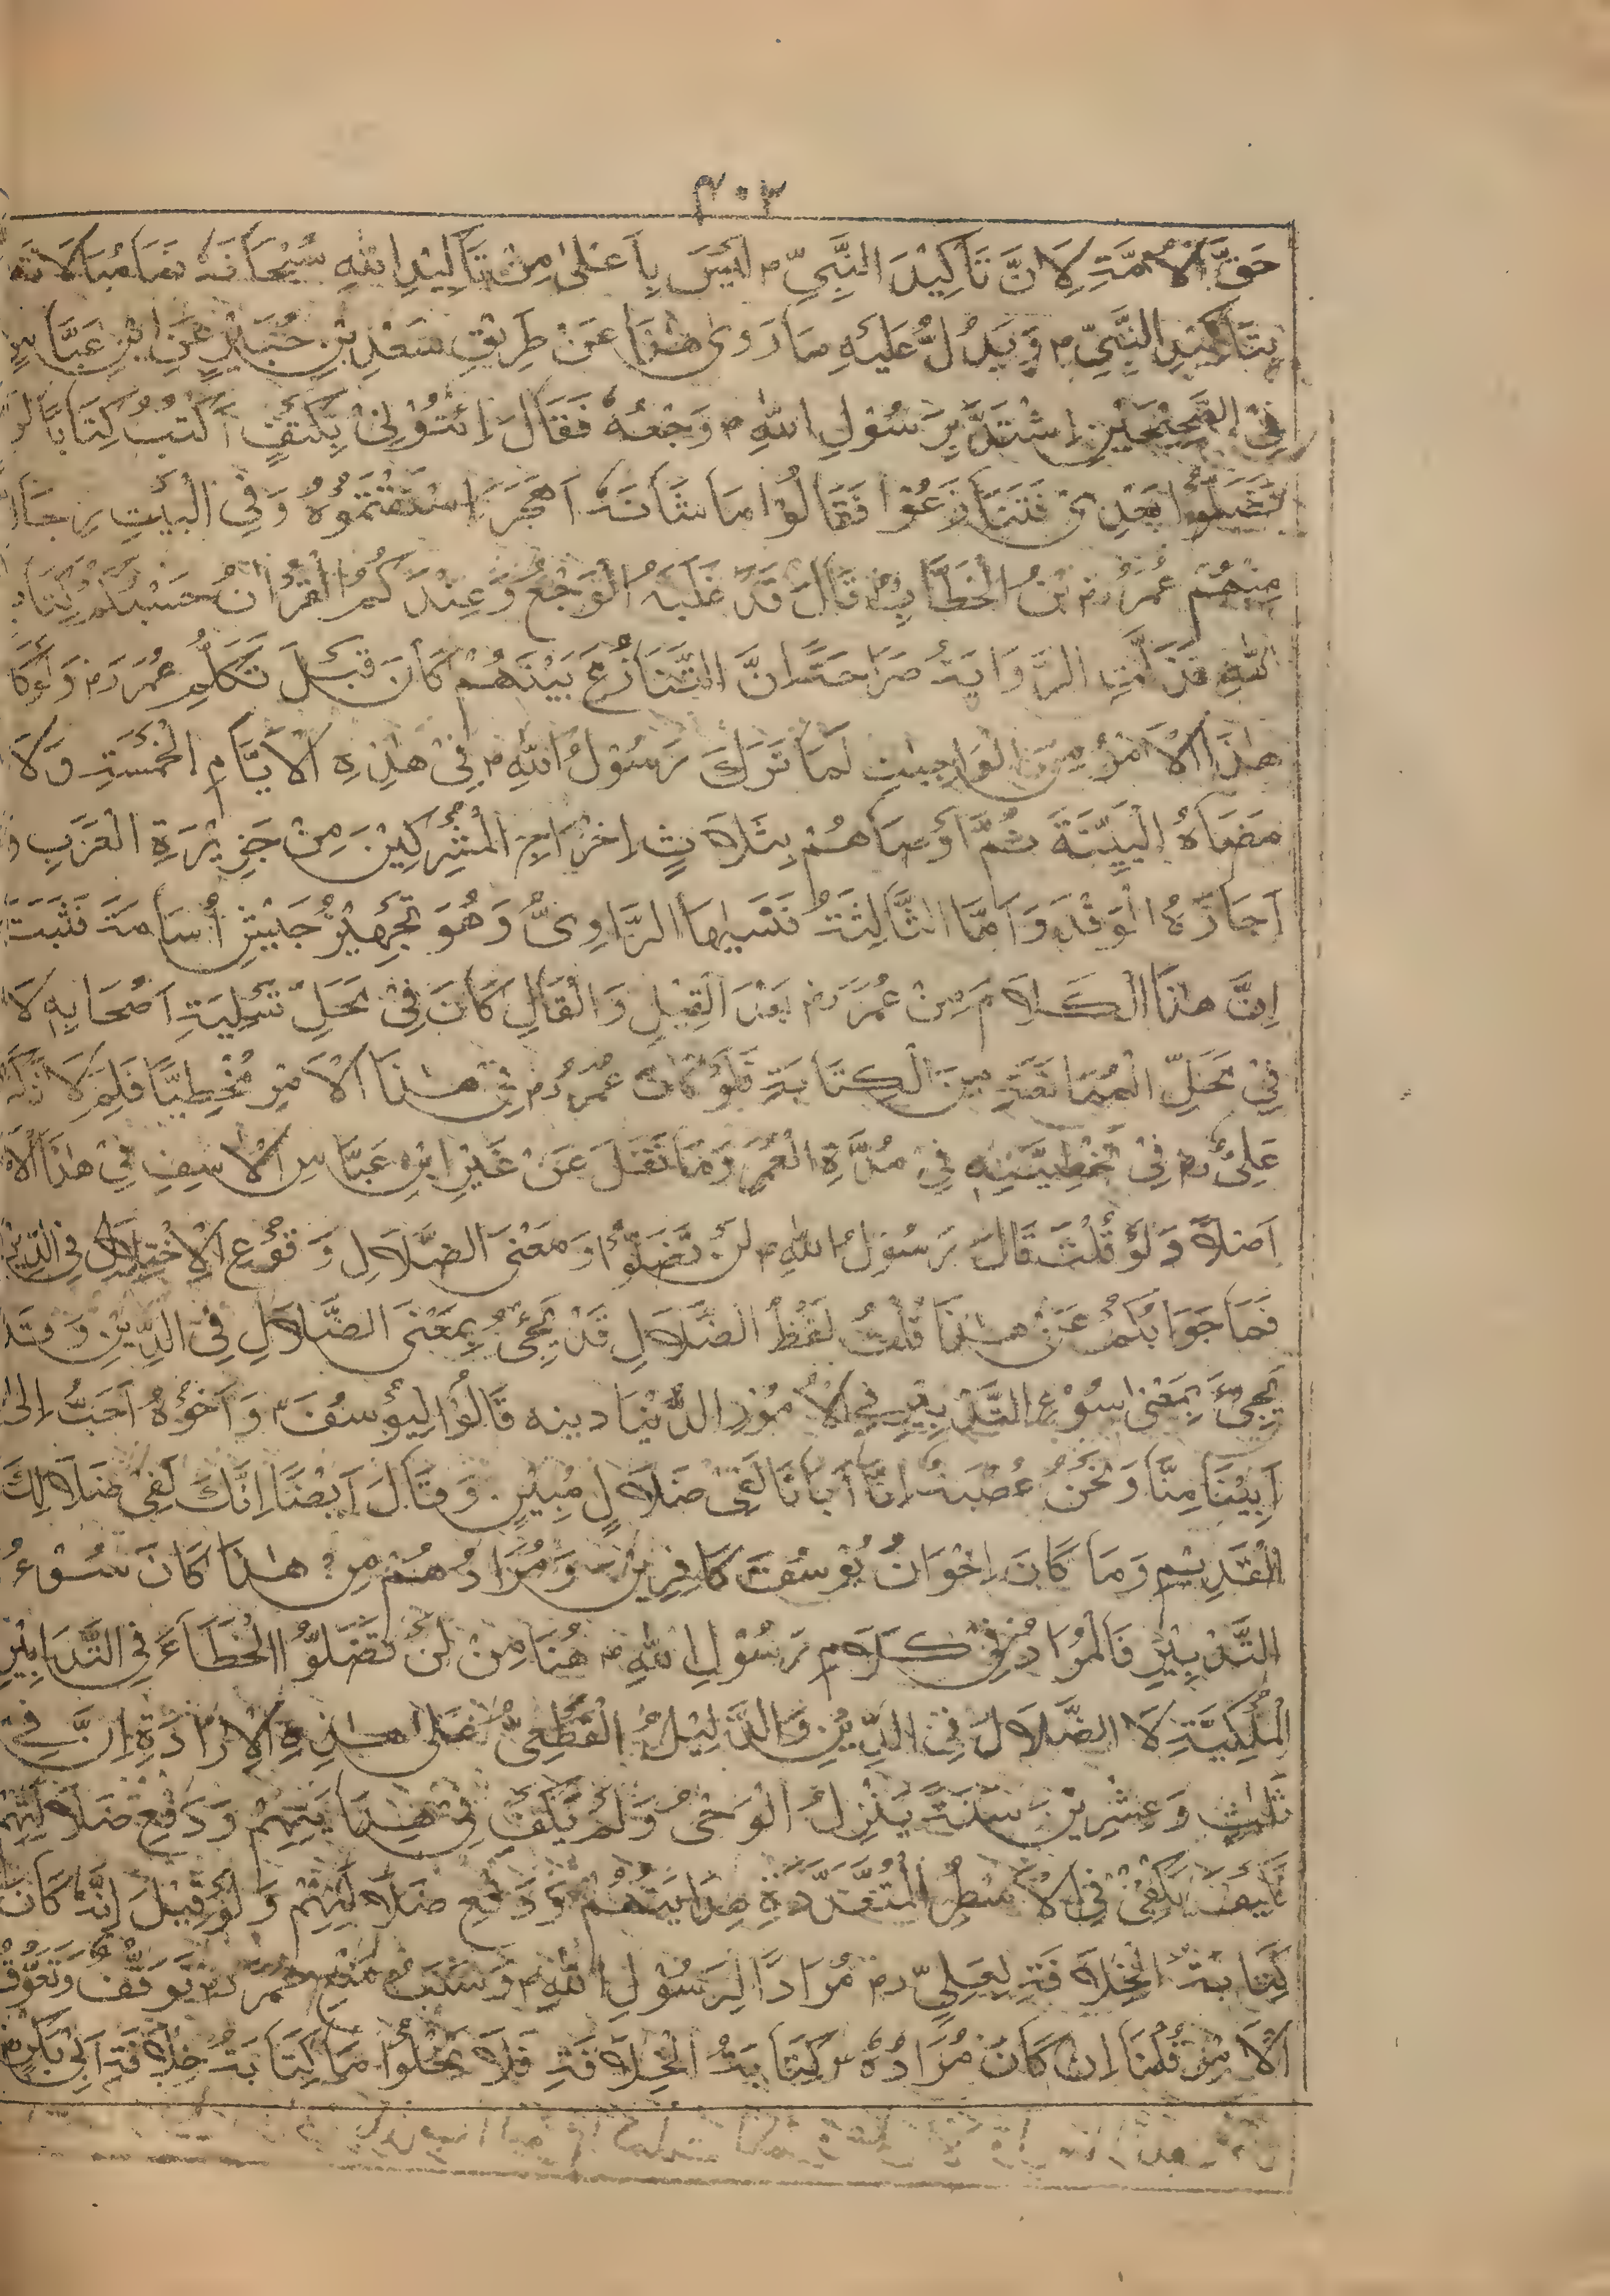 ٣٠٣
حَقِّ الْاُمَّةِ لِاَنَّ تَاكِيْدَ النَّبِيِّ ؐ لَيْسَ بِاَعْلىٰ مِنْ تَاكِيْدِ اللهِ سُبْحَانَهٗ
بِتَاكِيْدِ النَّبِيِّ ؐ وَيَدُلُّ عَلَيْهِ مَا رَوىٰ هٰذَا عَنْ طَرِيْقِ سَعْدِ بْنِ جُبَيْرٍ عَنِ ابْنِ عَبَّاسٍ
فِى الصَّحِيْحَيْنِ اِشْتَدَّ بِرَسُوْلِ اللهِ ؐ وَجْعُهٗ فَقَالَ اِئْتُوْنِىْ بِكَتْفٍ اَكْتُبُ كِتَابًا لَنْ
تَضَلُّوْا بَعْدِىْ فَتَنَازَعُوْا فَقَالُوْا مَا شَانُهٗ اَهَجَرَ اِسْتَفْهَمُوْهُ وَفِى الْبَيْتِ رِجَالٌ
مِنْهُمْ عُمَرُ بْنُ الْخَطَّابِ قَالَ قَدْ غَلَبَهُ الْوَجْعُ وَعِنْدَكُمُ الْقُرْاٰنُ حَسْبُكُمْ كِتَابُ
اللهِ فَدَلَّتِ الرِّوَايَةُ صَرَاحَتًا اَنَّ التَّنَازُعَ بَيْنَهُمْ كَانَ قَبْلَ تَكَلُّمِ عُمَرَ رض وَلَوْ كَانَ
هٰذَا الْاَمْرُ مِنَ الْوَاجِبَاتِ لَمَا تَرَكَ رَسُوْلُ اللهِ ؐ فِىْ هٰذِهِ الْاَيَّامِ الْخَمْسَةِ وَلَا
الْبَيِّنَةَ ثُمَّ اَوْصَاهُمْ بِثَلَاثٍ اِخْرَاجِ الْمُشْرِكِيْنَ مِنْ جَزِيْرَةِ الْعَرَبِ وَ
اَجَازَةُ الْوَفْدِ وَاَمَّا الثَّالِثَةُ فَنَسِيَهَا الرَّاوِىُّ وَهُوَ تَجْهِيْزُ جَيْشِ اُسَامَةَ فَثَبَتَ
اِنَّ هٰذَا الْكَلَامَ مِنْ عُمَرَ رض بَعْدَ الْقِيْلِ وَالْقَالِ كَانَ فِىْ مَحَلِّ تَسْلِيَةِ اَصْحَابِهٖ لَا
فِىْ مَحَلِّ الْمُمَانَعَةِ مِنَ الْكِتَابَةِ فَلَوْ كَانَ عُمَرُ رض فِىْ هٰذَا الْاَمْرِ مُخْطِيًّا فَلِمَ لَا ذَكَرَ
عَلِىٌّ رض فِىْ تَخْطِيَتِهٖ فِىْ مُدَّةِ الْعُمَرِ وَمَا نَقَلَ عَنْ غَيْرِ ابْنِ عَبَّاسٍ الْاَسِفِ فِىْ هٰذَا الْاَمْرِ
اَصْلًا وَلَوْ قُلْتَ قَالَ رَسُوْلُ اللهِ ؐ لَنْ تَضَلُّوْا وَمَعْنَى الضَّلَالِ وَقُوْعِ الْاِخْتِلَالِ فِى الدِّيْنِ
فَمَا جَوَابُكُمْ عَنْ هٰذَا قُلْتُ لَفْظُ الضَّلَالِ قَدْ يَجِىْءُ بِمَعْنَى الضَّلَالِ فِى الدِّيْنِ وَقَدْ
يَجِىْءُ بِمَعْنىٰ سُوْءِ التَّدْبِيْرِ فِى الْاُمُوْرِ الدُّنْيَاوِيَّه قَالُوْا لِيُوْسُفَ ؑ وَاَخُوْهُ اَحَبُّ اِلىٰ
اَبِيْنَا مِنَّا وَنَحْنُ عُصْبَةٌ اِنَّ اَبَانَا لَفِىْ ضَلَالٍ مُبِيْنٍ. وَقَالَ اَيْضًا اِنَّكَ لَفِىْ ضَلَالِكَ
الْقَدِيْمِ وَمَا كَانَ اِخْوَانُ يُوْسُفَ كَافِرِيْنَ وَمُرَادُهُمْ مِنْ هٰذَا كَانَ سُوْءُ
التَّدْبِيْرِ فَالْمُرَادُ فِىْ كَلَامِ رَسُوْلِ اللهِ ؐ هُنَا مِنْ لَنْ تَضَلُّوْا الْخَطَاءَ فِى التَّدَابِيْرِ
الْمُلْكِيَّةِ لَا الضَّلَالَ فِى الدِّيْنِ وَالدَّلِيْلُ الْقَطْعِىُّ عَلىٰ هٰذِهِ الْاِرَادَةِ اِنَّ فِىْ
ثَلٰثٍ وَعِشْرِيْنَ سَنَةً يَنْزِلُ الْوَحْىُ وَلَمْ يَكْفِ فِىْ هِدَايَتِهِمْ وَدَفْعِ ضَلَالَتِهِمْ
فَكَيْفَ يَكْفِىْ فِى الْاَسْطُرِ الْمُتَعَدَّدَةِ هِدَايَتُهُمْ وَدَفْعِ ضَلَالَتِهِمْ وَلَوْ قِيْلَ اِنَّهٗ كَانَ
كِتَابَةُ الْخِلَافَةِ لِعَلِىٍّ رض مُرَادًا لِرَسُوْلِ اللهِ ؐ وَسَبَبُ مَنْعِ عُمَرَ رض تَوَقُّفُ وَتَعَوُّقُ
الْاَمْرِ قُلْنَا اِنْ كَانَ مُرَادُهٗ ؐ كِتَابَةُ الْخِلَافَةِ فَلَا يَخْلُوْا مَا كِتَابَةُ خِلَافَةِ اَبِىْ بَكْرٍ رض